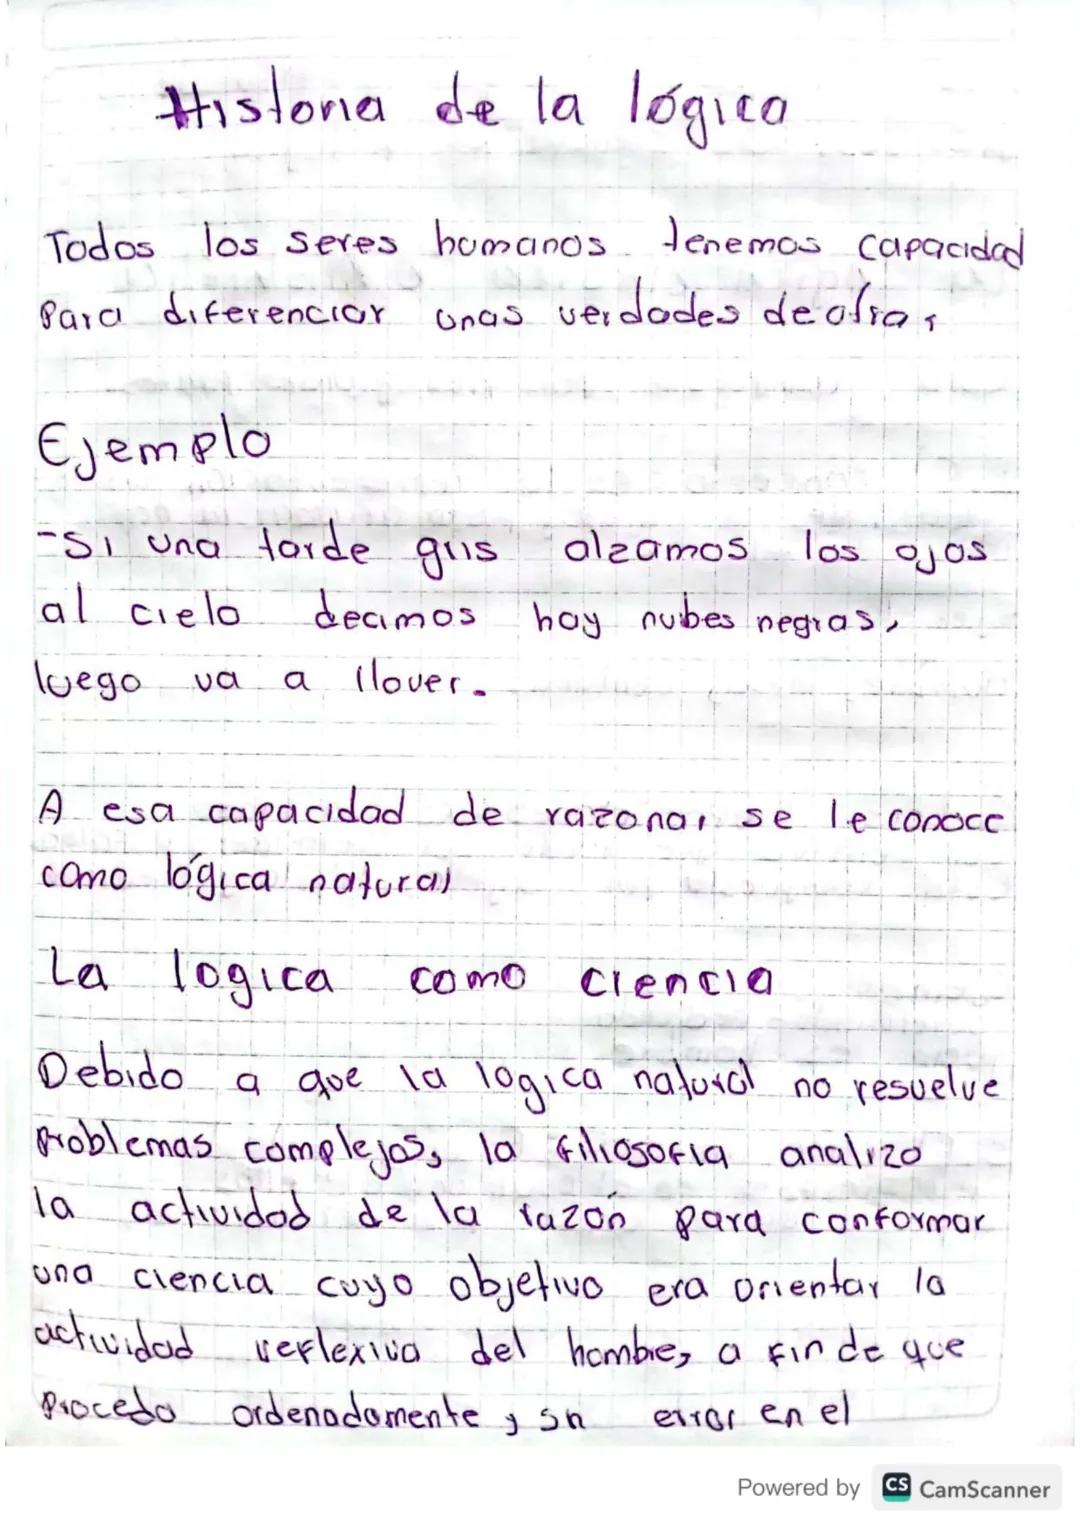 Historia de la lógica
Todos los seres humanos tenemos capacidad
para diferenciar unas verdades de otras
Ejemplo
-Si una tarde gris alzamos los ojos
al cielo decimos hay nubes negras,
luego va a llover.
A esa capacidad de razonar se le conoce
como lógica natural
La logica como ciencia
Debido a que la logica natural no resuelve
problemas complejos, la filiosofia analizo
la actividad de la razón para conformar
una ciencia cuyo objetivo era orientar la
actividad reflexiva del hombre, a fin de que
proceda ordenadamente y sn error en el
Powered by CS CamScanner